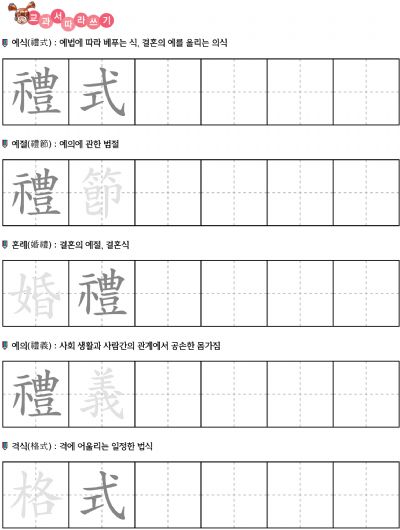 교과서따라쓰기
예식(禮式) : 예법에 따라 베푸는 식, 결혼의 예를 올리는 의식
禮式
예절(禮節) : 예의에 관한 범절
禮節
혼례(婚禮) : 결혼의 예절, 결혼식
婚禮
예의(禮義) : 사회 생활과 사람간의 관계에서 공손한 몸가짐
禮義
격식(格式) : 격에 어울리는 일정한 법식
格式